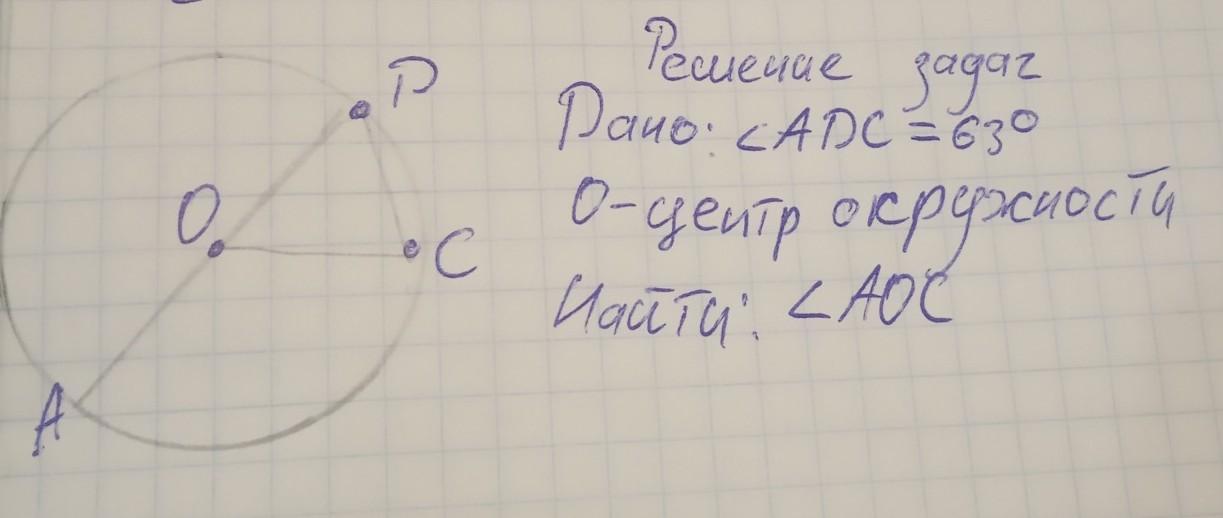 Решение задач
Дано: ∠ADC = 63°
O-центр окружности
Найти: ∠AOC
D
O
C
A